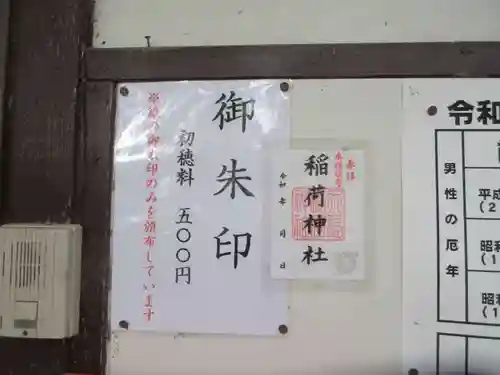 御朱印
初穂料 五〇〇円
のみを頒布しています
奉拝
稲荷神社
令和 年 月 日
令和
男性の厄年
平成
昭和
昭和